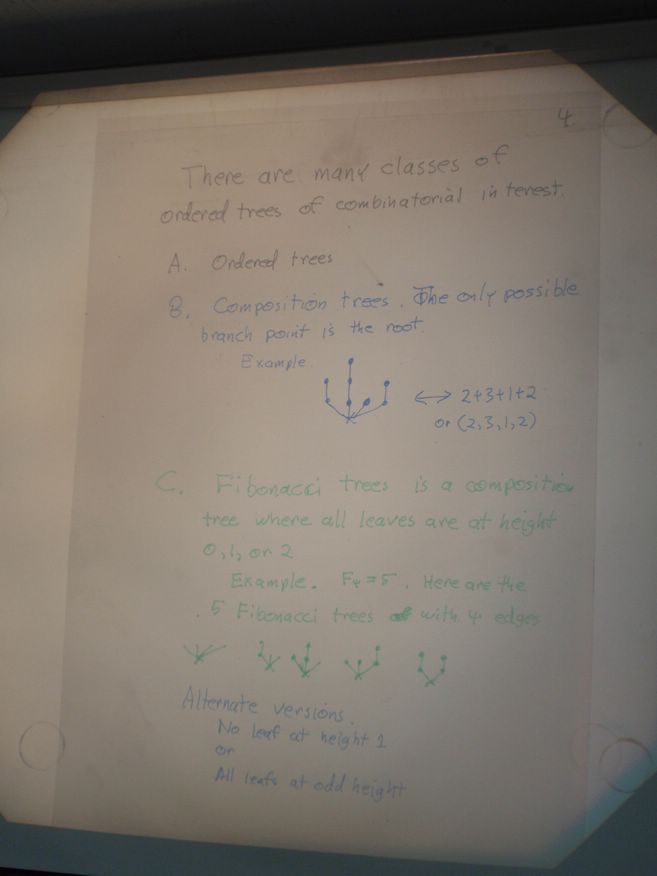 4
There are many classes of
ordered trees of combinatorial interest.
A. Ordered trees
B. Composition trees. The only possible
branch point is the root.
Example
↔ 2+3+1+2
or (2,3,1,2)
C. Fibonacci trees is a composition
tree where all leaves are at height
0,1, or 2
Example. F₄=5. Here are the
5 Fibonacci trees with 4 edges
Alternate versions.
No leaf at height 1
or
All leafs at odd height